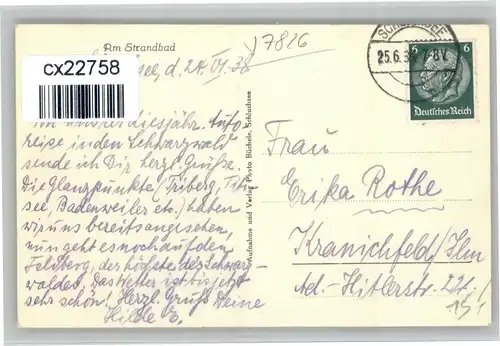 Am Strandbad
17826
SCHLUCHSEE
6 6
cx22758
d. 24. VI. 38
25.6.3 -8V
Deutsches Reich
diesjähr. Auto-
reise in den Schwarzwald
sende ich Dir herzl. Grüße.
Die Glanzpunkte (Triberg, Titi-
see, Badenweiler etc.) haben
wir uns bereits angesehen,
nun geht es noch auf den
Feldberg, der höchste des Schwarz-
waldes. Das Wetter ist bis jetzt
sehr schön! Herzl. Gruß Deine
Hilde E.
Aufnahme und Verlag Photo Bücheler, Schluchsee
Frau
Erika Rothe
Kranichfeld/Ilm
Ad.-Hitlerstr. 221.
15,-